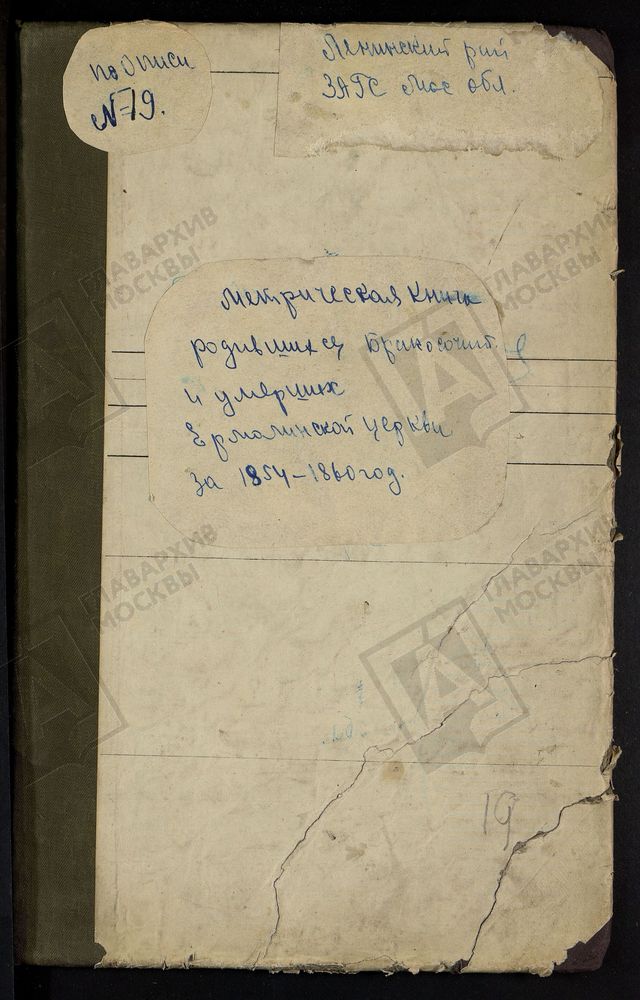 по Описи
№79.
Ленинский рай
ЗАГС Мос обл.
Метрическая Книга
родившихся Бракосочит.
и умерших
Ермолинской церкви
за 1854-1860 год.
19
ГЛАВАРХИВ
МОСКВЫ
ГЛАВАРХИВ
МОСКВЫ
ГЛАВАРХИВ
МОСКВЫ
ГЛАВАРХИВ
МОСКВЫ